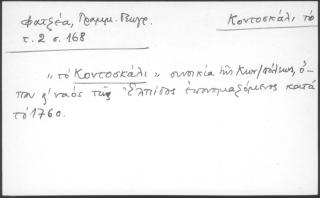 Φατζέα, Γραμμ. Γεωγρ. Κοντοσκάλι, τό
τ. 2 σ. 168
"τό Κοντοσκάλι" συνοικία τῆς Κων/πόλεως, ὅ-
που ὁ ναός τῆς Ἐλπίδος ἐπονομαζόμενος κατά
τό 1760.